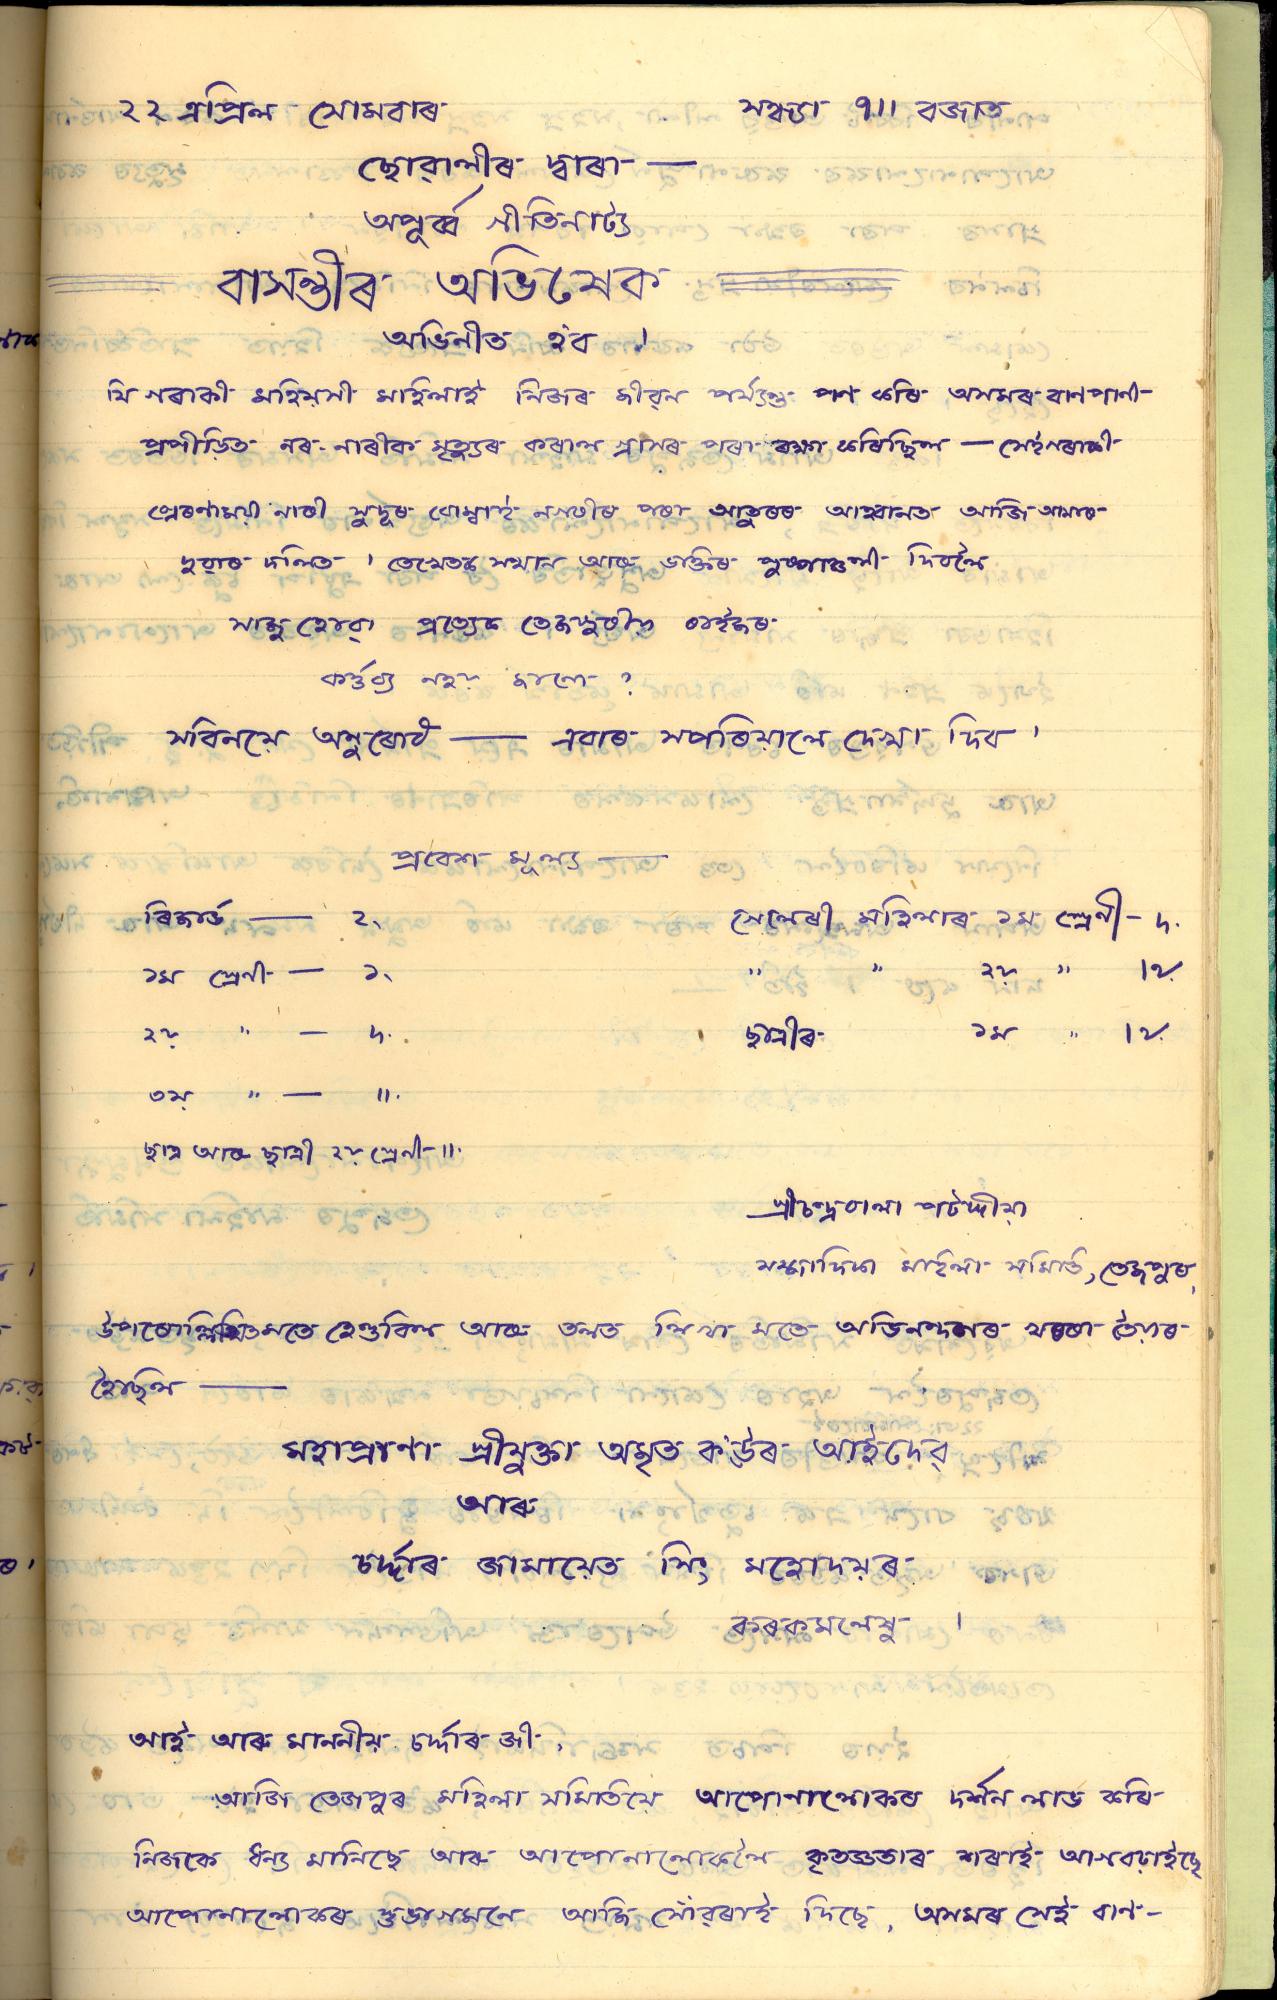 ২২ এপ্রিল সোমবাৰ সন্ধ্যা ৭॥ বজাত
ছোৱালীৰ দ্বাৰা —
অপূৰ্ব্ব গীতিনাট্য
বাসন্তীৰ অভিষেক
অভিনীত হ'ব ।
যি গৰাকী মহিয়সী মহিলাই নিজৰ জীৱন পৰ্য্যন্ত পণ কৰি অসমৰ বানপানী-
প্ৰপীড়িত নৰ-নাৰীক মৃত্যুৰ কৰাল গ্ৰাসৰ পৰা ৰক্ষা কৰিছিল — সেইগৰাকী
প্ৰেৰণাময়ী নাৰী সুদূৰ বোম্বাই নগৰীৰ পৰা আতুৰৰ আহ্বানত আজি আমাৰ
দুৱাৰ দলিত । তেখেতক সন্মান আৰু ভক্তিৰ পুষ্পাঞ্জলী দিবলৈ
সাজু হোৱা প্ৰত্যেক তেজপুৰীয় ৰাইজৰ
কৰ্ত্তব্য নহয় জানো ?
সবিনয়ে অনুৰোধ — এবাৰ সপৰিয়ালে দেখা দিব ।
প্ৰবেশ মূল্য —
ৰিজাৰ্ভ — ২৲ গেলেৰী মহিলাৰ ১ম শ্ৰেণী —
১ম শ্ৰেণী — ১৲ " " ২য় "
২য় " — ছাত্ৰীৰ ১ম "
৩য় " — ॥.
ছাত্ৰ আৰু ছাত্ৰী ২য় শ্ৰেণী-॥.
শ্ৰীচন্দ্ৰবালা পাটদীয়া
সম্পাদিকা মহিলা সমিতি, তেজপুৰ,
উপৰোল্লিখিতমতে হেণ্ডবিল আৰু তলত লিখা মতে অভিনন্দনৰ খচৰা তৈয়াৰ
হৈছিল —
মহাপ্ৰাণা শ্ৰীযুক্তা অমৃত ক'উৰ আইদেৱ
আৰু
চৰ্দ্দাৰ জামায়েত সিং মহোদয়ৰ
কৰকমলেষু ।
আই আৰু মাননীয় চৰ্দ্দাৰ জী,
আজি তেজপুৰ মহিলা সমিতিয়ে আপোনালোকৰ দৰ্শন লাভ কৰি
নিজকে ধন্য মানিছে আৰু আপোনালোকলৈ কৃতজ্ঞতাৰ শৰাই আগবঢ়াইছে
আপোনালোকৰ শুভাগমনে আজি সোঁৱৰাই দিছে, অসমৰ সেই বান-